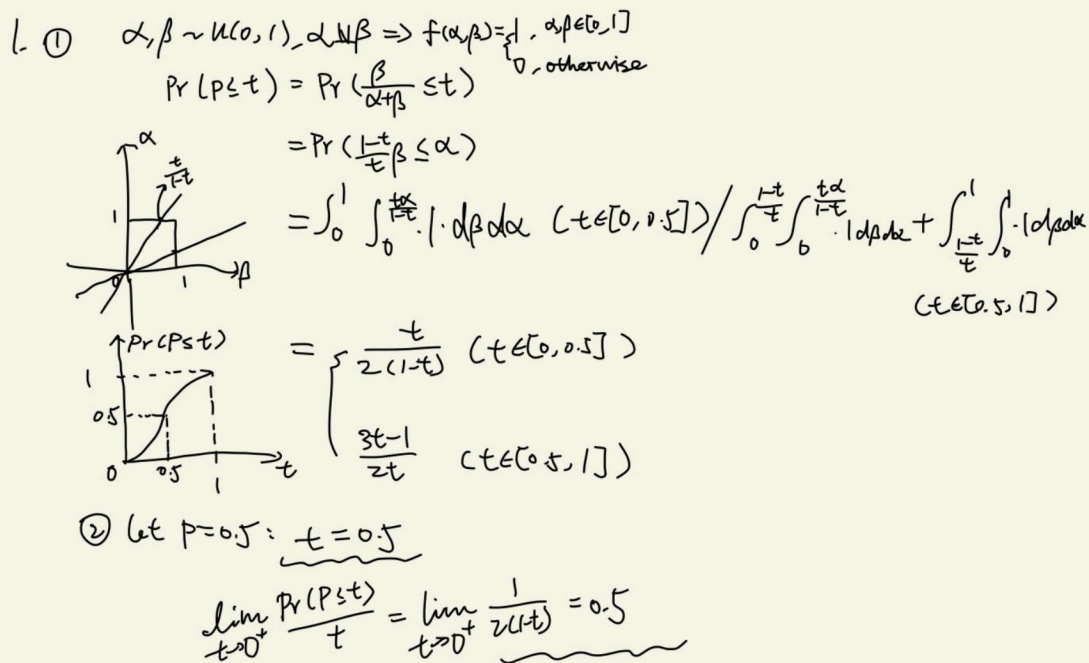 1. ① α,β ~ U(0,1), α⫫β ⇒ f(α,β)={1, α,β∈[0,1]
0, otherwise
Pr(P≤t) = Pr(β/(α+β) ≤t)
=Pr((1-t)/t β ≤ α)
α
t/(1-t)
1
0
1
β
=∫₀¹ ∫₀^(tα/(1-t)) 1·dβdα (t∈[0,0.5]) / ∫₀^((1-t)/t) ∫₀^(tα/(1-t)) ·1dβdα + ∫_((1-t)/t)^1 ∫₀¹ ·1dβdα
(t∈[0.5,1])
Pr(P≤t)
1
0.5
0
0.5
1
t
= { t/(2(1-t)) (t∈[0,0.5])
(3t-1)/(2t) (t∈[0.5,1])
② let P=0.5: t=0.5
lim t→0⁺ Pr(P≤t)/t = lim t→0⁺ 1/(2(1-t)) = 0.5